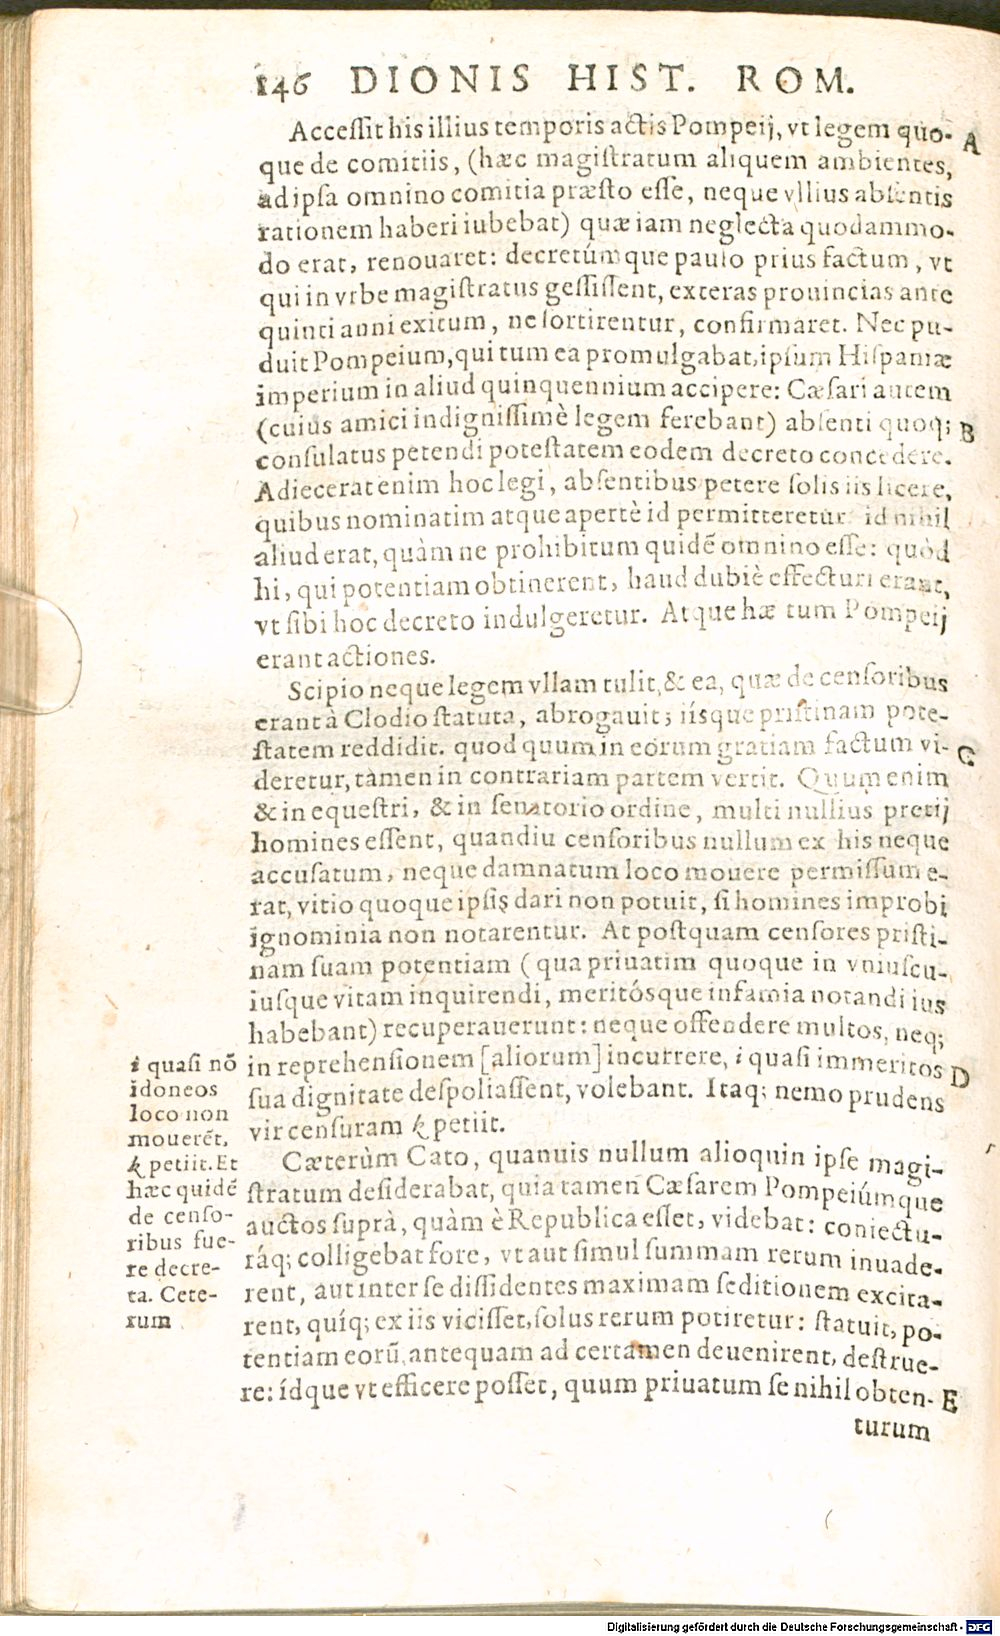 146 DIONIS HIST. ROM.
Accessit his illius temporis actis Pompeij, vt legem quo- A
que de comitiis, (hæc magistratum aliquem ambientes,
ad ipsa omnino comitia præsto esse, neque vllius absentis
rationem haberi iubebat) quæ iam neglecta quodammo-
do erat, renouaret: decretúmque paulo prius factum, vt
qui in vrbe magistratus gessissent, exteras prouincias ante
quinti anni exitum, ne sortirentur, confirmaret. Nec pu-
duit Pompeium, qui tum ea promulgabat, ipsum Hispaniæ
imperium in aliud quinquennium accipere: Cæsari autem
(cuius amici indignissimè legem ferebant) absenti quoq; B
consulatus petendi potestatem eodem decreto concedere.
Adiecerat enim hoc legi, absentibus petere solis iis licere,
quibus nominatim atque apertè id permitteretur. id nihil
aliud erat, quàm ne prohibitum quidẽ omnino esse: quòd
hi, qui potentiam obtinerent, haud dubiè effecturi erant,
vt sibi hoc decreto indulgeretur. Atque hæ tum Pompeij
erant actiones.
Scipio neque legem vllam tulit, & ea, quæ de censoribus
erant à Clodio statuta, abrogauit; iísque pristinam pote-
statem reddidit. quod quum in eorum gratiam factum vi- C
deretur, tàmen in contrariam partem vertit. Quum enim
& in equestri, & in senatorio ordine, multi nullius pretij
homines essent, quandiu censoribus nullum ex his neque
accusatum, neque damnatum loco mouere permissum e-
rat, vitio quoque ipsis dari non potuit, si homines improbi
ignominia non notarentur. At postquam censores pristi-
nam suam potentiam (qua priuatim quoque in vniuscu-
iusque vitam inquirendi, meritósque infamia notandi ius
habebant) recuperauerunt: neque offendere multos, neq;
in reprehensionem [aliorum] incurrere, i quasi immeritos D
sua dignitate despoliassent, volebant. Itaq; nemo prudens
vir censuram k petiit.
i quasi nõ
idoneos
loco non
mouerẽt.
k petiit. Et
hæc quidẽ
de censo-
ribus fue-
re decre-
ta. Cete-
rum
Cæterùm Cato, quanuis nullum alioquin ipse magi-
stratum desiderabat, quia tamen Cæsarem Pompeiúmque
auctos suprà, quàm è Republica esset, videbat: coniectu-
ráq; colligebat fore, vt aut simul summam rerum inuade-
rent, aut inter se dissidentes maximam seditionem excita-
rent, quíq; ex iis vicisset, solus rerum potiretur: statuit, po-
tentiam eorũ, antequam ad certamen deuenirent, destrue-
re: ídque vt efficere posset, quum priuatum se nihil obten- E
turum
Digitalisierung gefördert durch die Deutsche Forschungsgemeinschaft - DFG